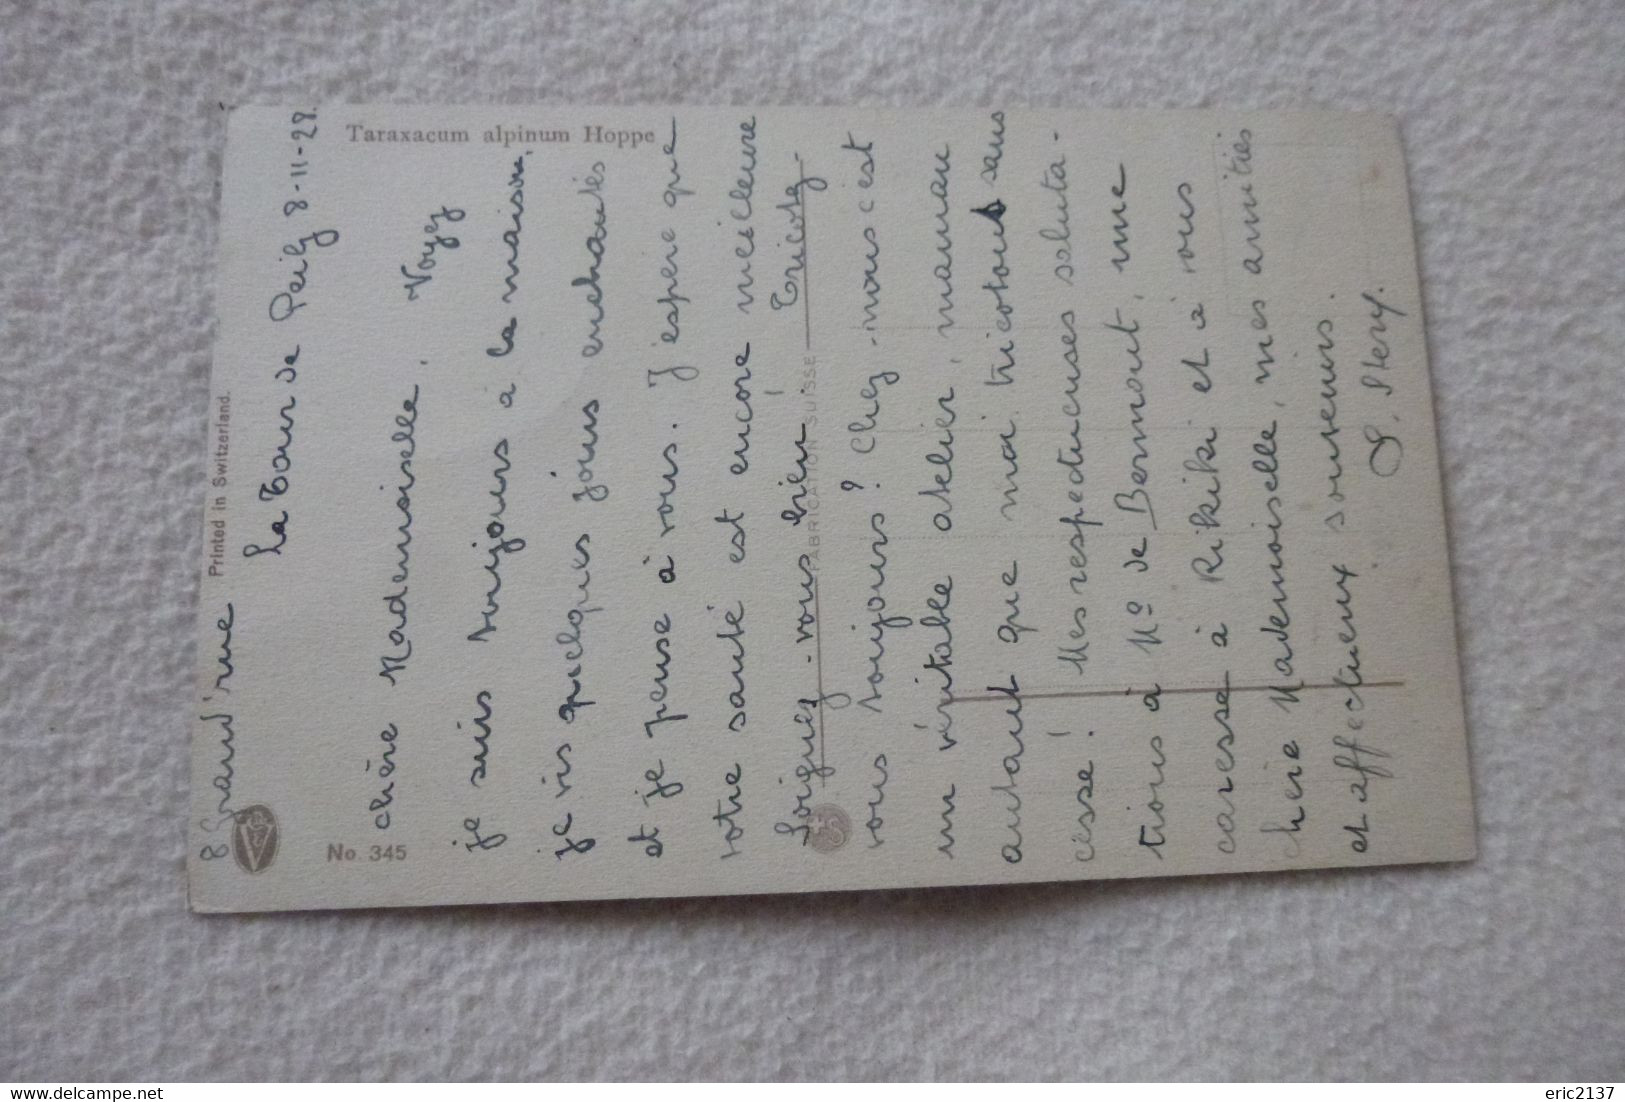 8 Grand'rue
La Tour de Peilz 8-11-28.
Chère Mademoiselle, Voyez
je suis toujours à la maison,
je vis quelques jours enchantés
et je pense à vous. J'espère que
votre santé est encore meilleure
Soignez-vous bien! Tricotez-
vous toujours? Chez-nous c'est
un véritable atelier, maman
autant que moi tricotous sans
césse! Mes respectueuses saluta-
tions à Me de Bermont, une
caresse à Rikiki et à vous
chère Mademoiselle, mes amitiés
et affectueux souvenirs.
Printed in Switzerland.
Taraxacum alpinum Hoppe
No 345
FABRICATION SUISSE
delcampe.net
eric2137